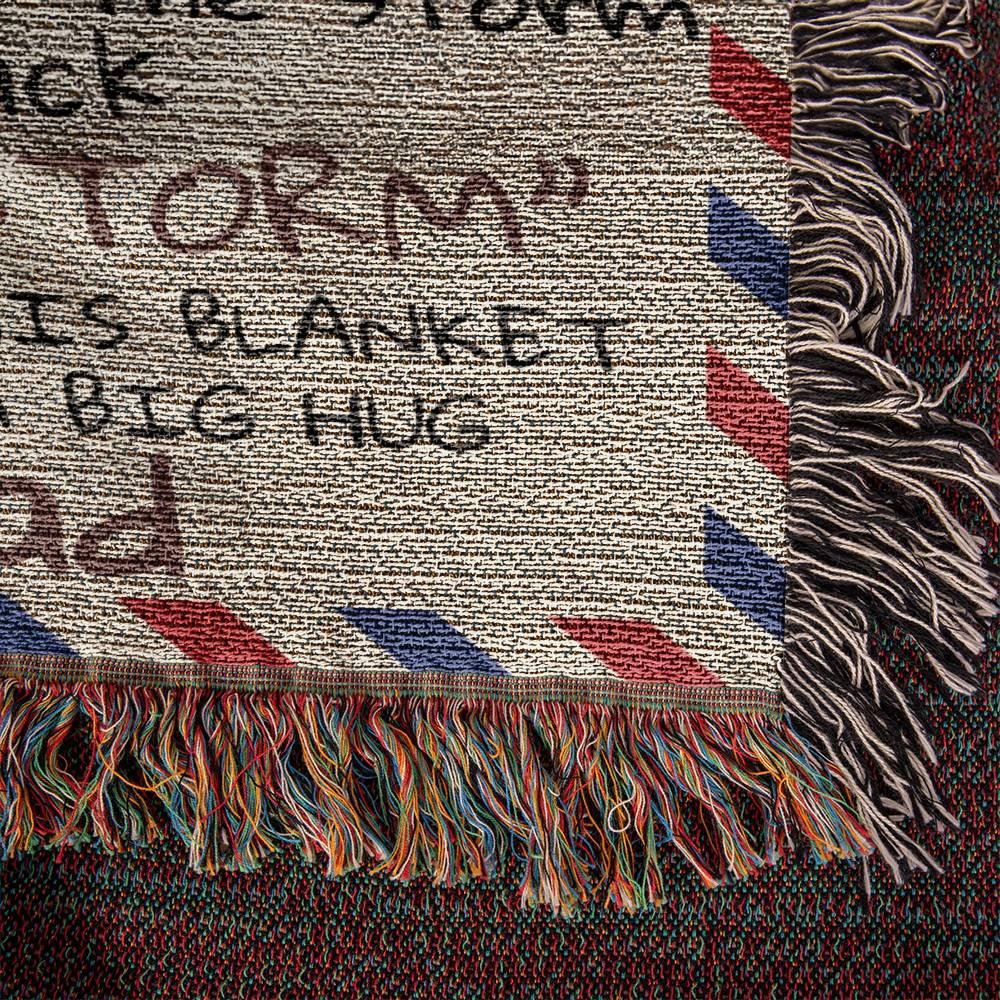 the storm
ack
TORM”
IS BLANKET
BIG HUG
ad